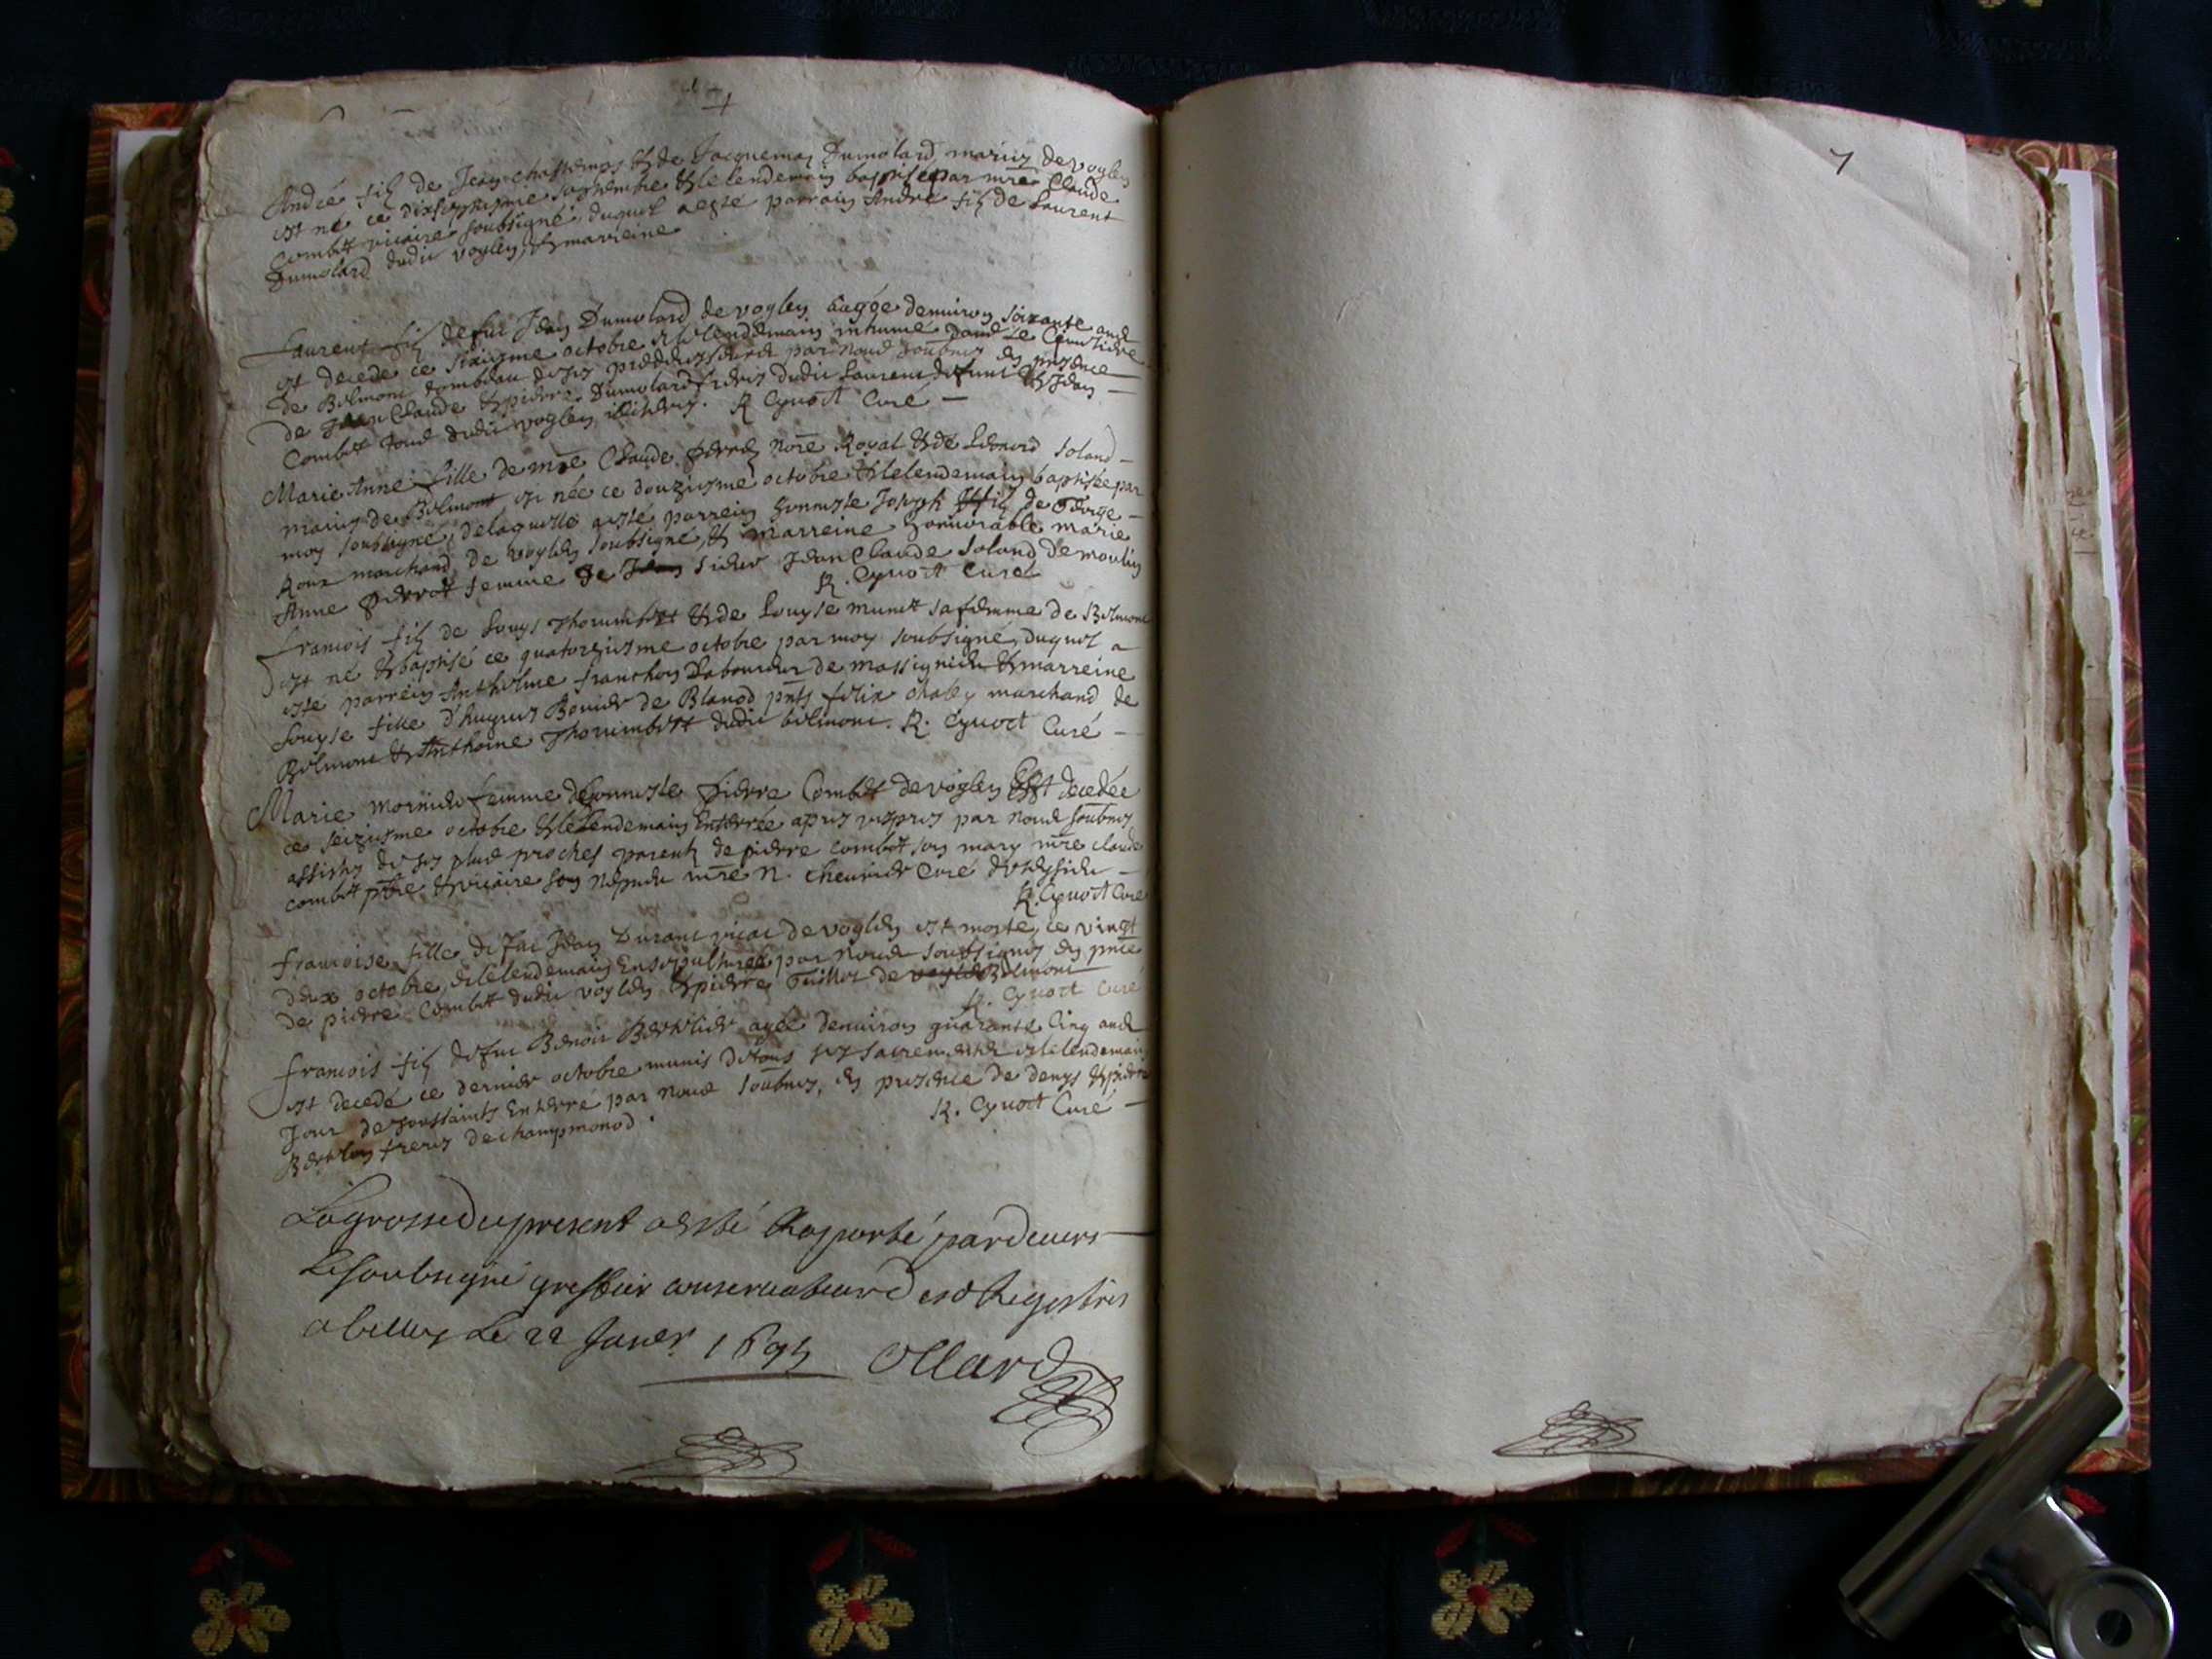 André fils de Jean chastemps & de Jacquemaz Dumolard mariez de voglen
est né ce dixseptiesme septembre & le lendemain baptisé par mre Claude
Combet vicaire soubsigné, duquel a esté parrain André fils de Laurent
Dumolard dudit voglen, & marreine
Laurent fils de fut Jean Dumolard de voglen aagée denuiron soixante ans
est decedé ce sixiesme octobre & le lendemain inhumé dans le Cimetiere
de Belmont tombeau de ses predecesseurs par nous soubnez en presence
de Jean Claude & pierre Dumolard freres dudit Laurent defunt & Jean
Combet tous dudit voglen R Cynoct Curé
Marie Anne fille de mre Claude nore Royal & de Leonord Soland
mariez de Belmont, est née ce douziesme octobre & le lendemain baptisée par
moy soubsigné, de laquelle a esté parrein honneste Joseph fils de George
Roux marchand de voglen soubsigné, & marreine honnorable marie
Anne pierrot femme de sieur Jean Claude Soland de moulin
R. Cynoct Curé
francois fils de Louys Thorumbert & de Louyse munet sa femme de Belmont
est né & baptisé ce quatorziesme octobre par moy soubsigné, duquel a
esté parrein Anthelme franchon Laboureur de massignieu & marreine
Louyse fille d'hugues Bouvier de Blanod pnts felix chaley marchand de
Belmont & Anthoine Thorumbert dudit belmont. R. Cynoct Curé
Marie femme de honneste pierre Combet de voglen Est decedée
ce seiziesme octobre & le Lendemain Enterrée apres vespres par nous soubnez
assistez de ses plus proches parents de pierre combet son mary mre claude
combet pbre & vicaire son nepueu mre N. cheurier Curé
R. Cynoct Curé
francoise fille de fut Jean Durand de voglen est morte, ce vingt
deux octobre, & le lendemain Ensepulturée par nous soubsignez en pnce
de pierre Combet dudit voglen & pierre de Belmont
R. Cynoct Curé
francois fils de fut Benoit Berthelier agée denuiron quarante cinq ans
est decedé ce dernier octobre munis de tous ses sacrements & le lendemain
Jour de toussaints Enterré par nous soubnez, en presence de denys & pierre
freres de champmonod. R. Cynoct Curé
La grosse du present a esté Raporté pardeuers
Le soubsigné greffier conseruateur desd Registres
a belley Le 22 Janer 1695 Ollard
7